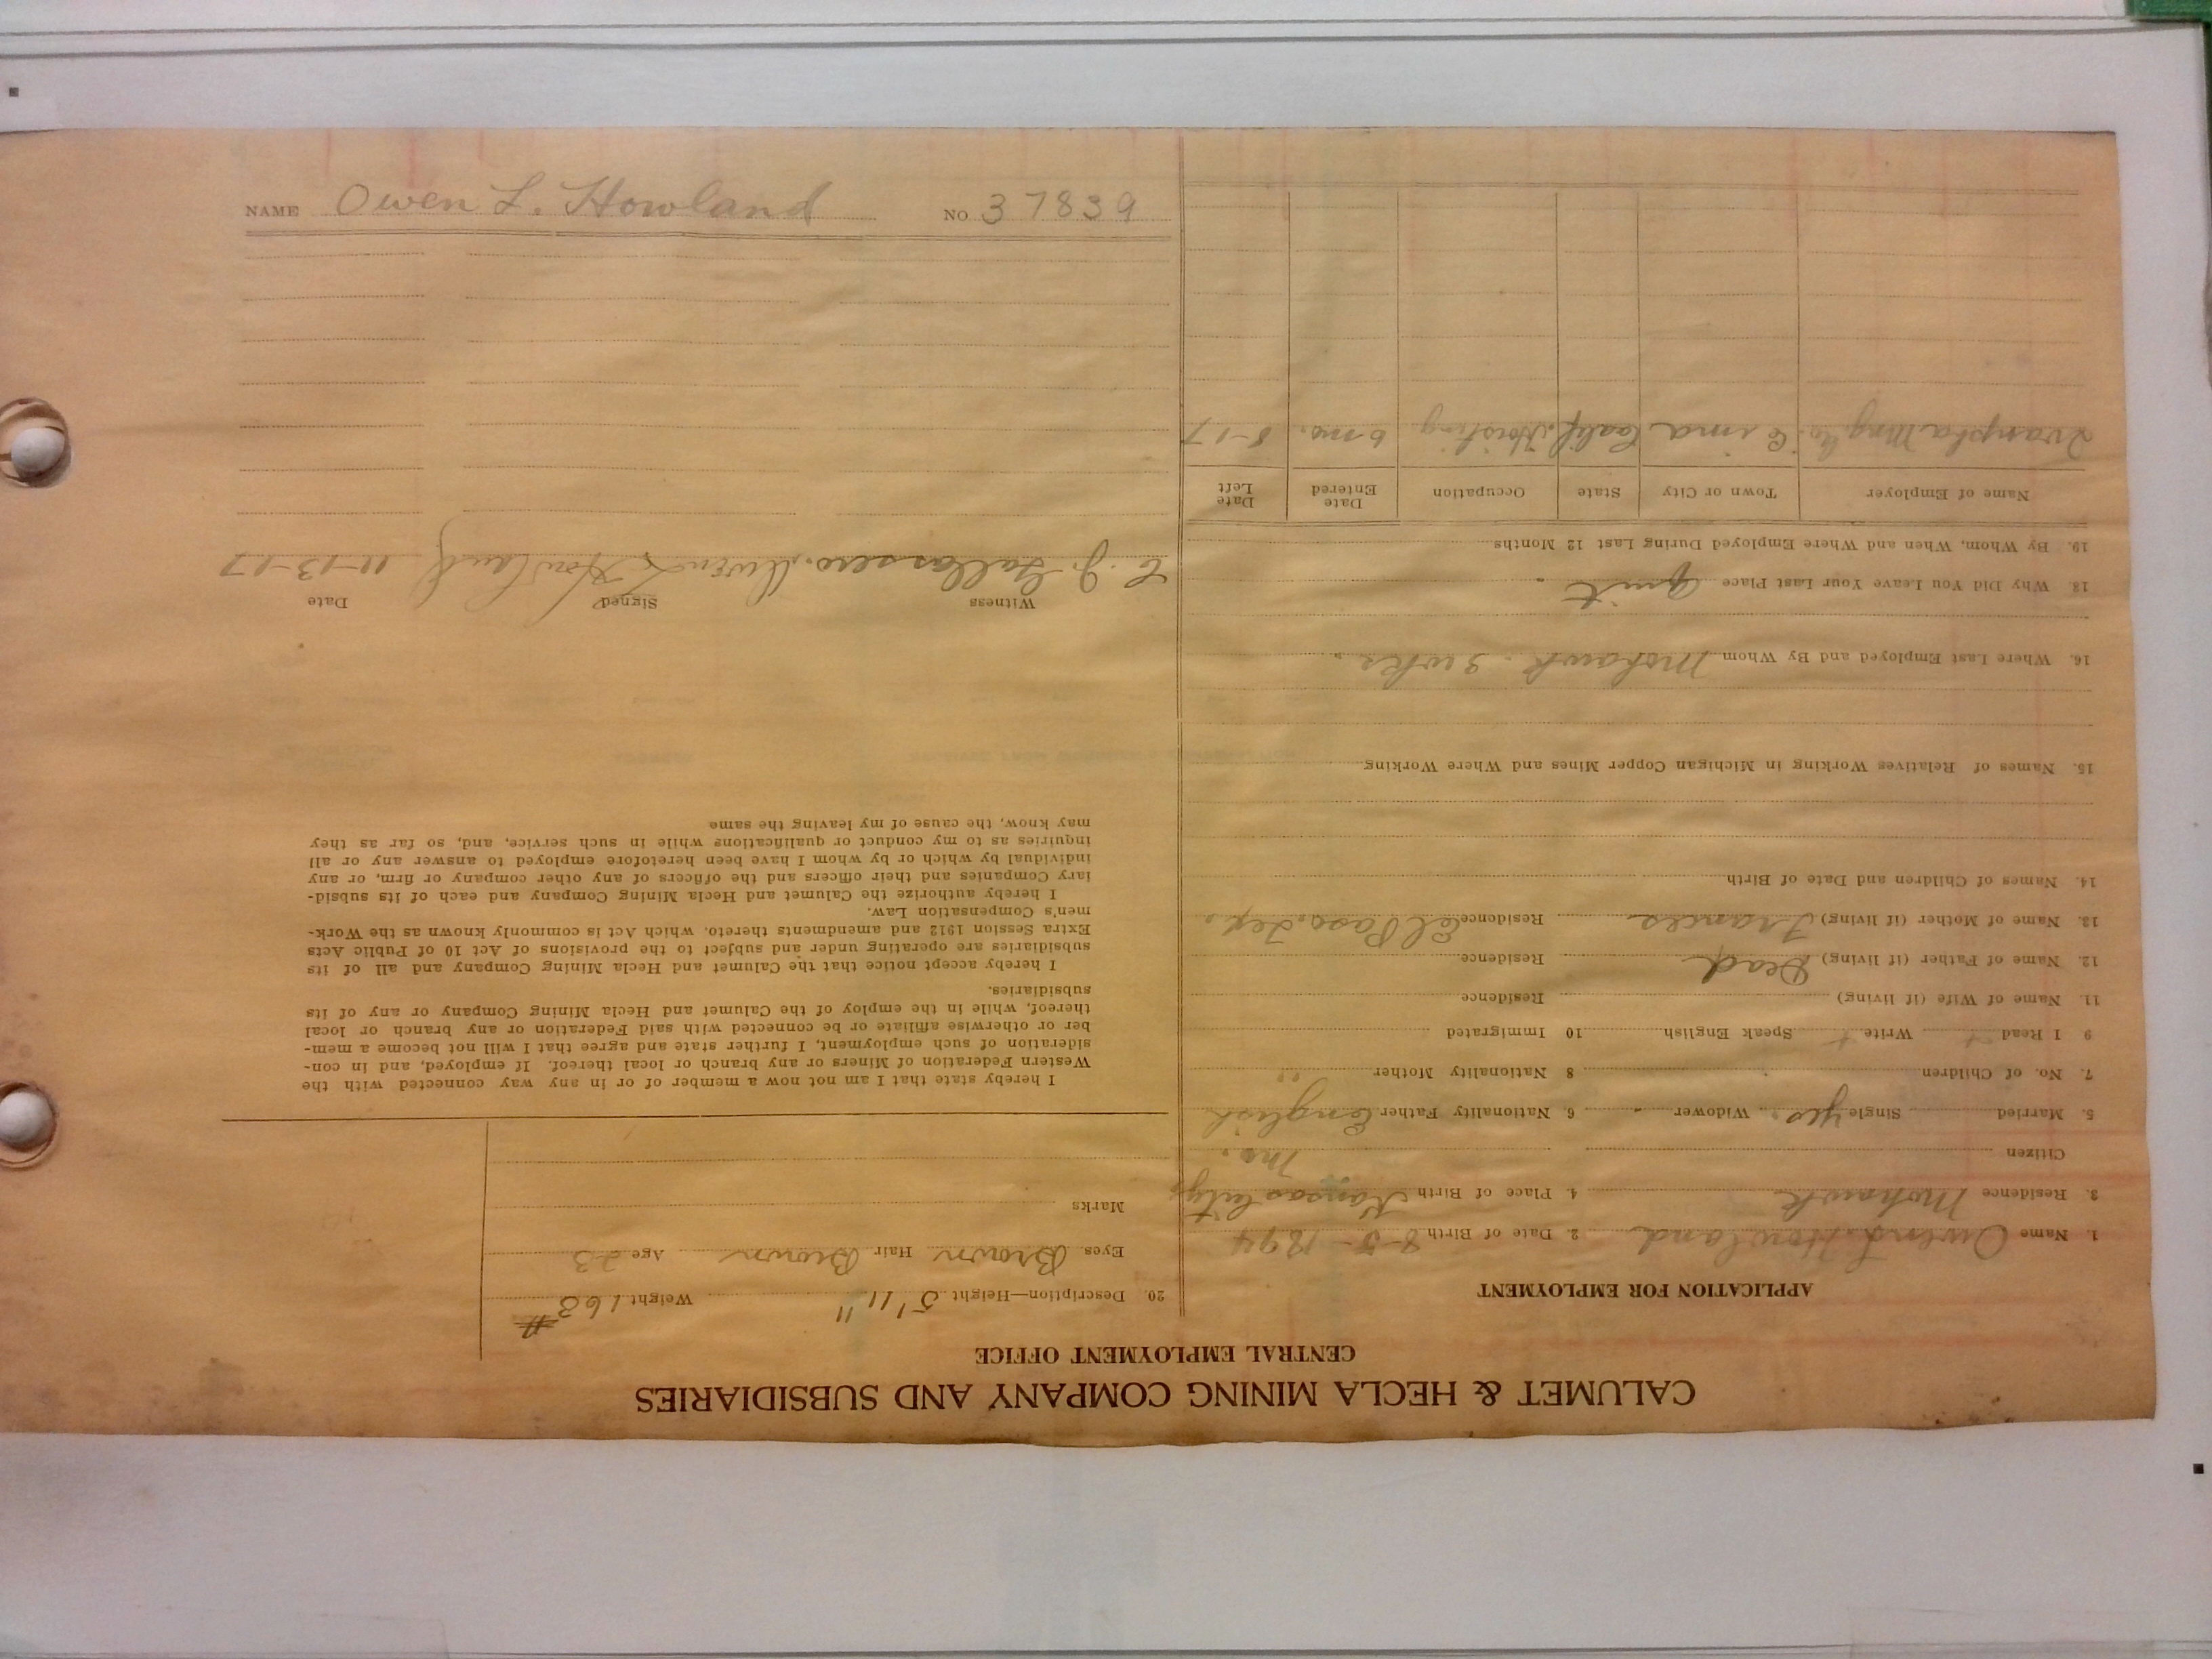 CALUMET & HECLA MINING COMPANY AND SUBSIDIARIES
CENTRAL EMPLOYMENT OFFICE
APPLICATION FOR EMPLOYMENT
1. Name Owen L. Howland 2. Date of Birth 8-5-1894
3. Residence Mohawk 4. Place of Birth Kansas City,
Citizen Mo.
5. Married Single yes. Widower - 6. Nationality Father English
7. No. of Children 8 Nationality Mother "
9 I Read Write Speak English 10 Immigrated
11. Name of Wife (if living) Residence
12. Name of Father (if living) Dead Residence
13. Name of Mother (if living) Frances Residence El Paso, Tex.
14. Names of Children and Date of Birth
15. Names of Relatives Working in Michigan Copper Mines and Where Working
16. Where Last Employed and By Whom Mohawk. 3 wks.
18. Why Did You Leave Your Last Place Quit.
19. By Whom, When and Where Employed During Last 12 Months
Name of Employer Town or City State Occupation Date Entered Date Left
Ivanpha Mng Co. Cima Calif. Hoisting 6 mo. 8-17
20. Description—Height 5' 11" Weight 163 #
Eyes Brown Hair Brown Age 23
Marks
I hereby state that I am not now a member of or in any way connected with the
Western Federation of Miners or any branch or local thereof. If employed, and in con-
sideration of such employment, I further state and agree that I will not become a mem-
ber or otherwise affiliate or be connected with said Federation or any branch or local
thereof, while in the employ of the Calumet and Hecla Mining Company or any of its
subsidiaries.
I hereby accept notice that the Calumet and Hecla Mining Company and all of its
subsidiaries are operating under and subject to the provisions of Act 10 of Public Acts
Extra Session 1912 and amendments thereto, which Act is commonly known as the Work-
men's Compensation Law.
I hereby authorize the Calumet and Hecla Mining Company and each of its subsid-
iary Companies and their officers and the officers of any other company or firm, or any
individual by which or by whom I have been heretofore employed to answer any or all
inquiries as to my conduct or qualifications while in such service, and, so far as they
may know, the cause of my leaving the same
Witness Signed Date
Owen L Howland 11-13-17
NAME Owen L. Howland NO 37839